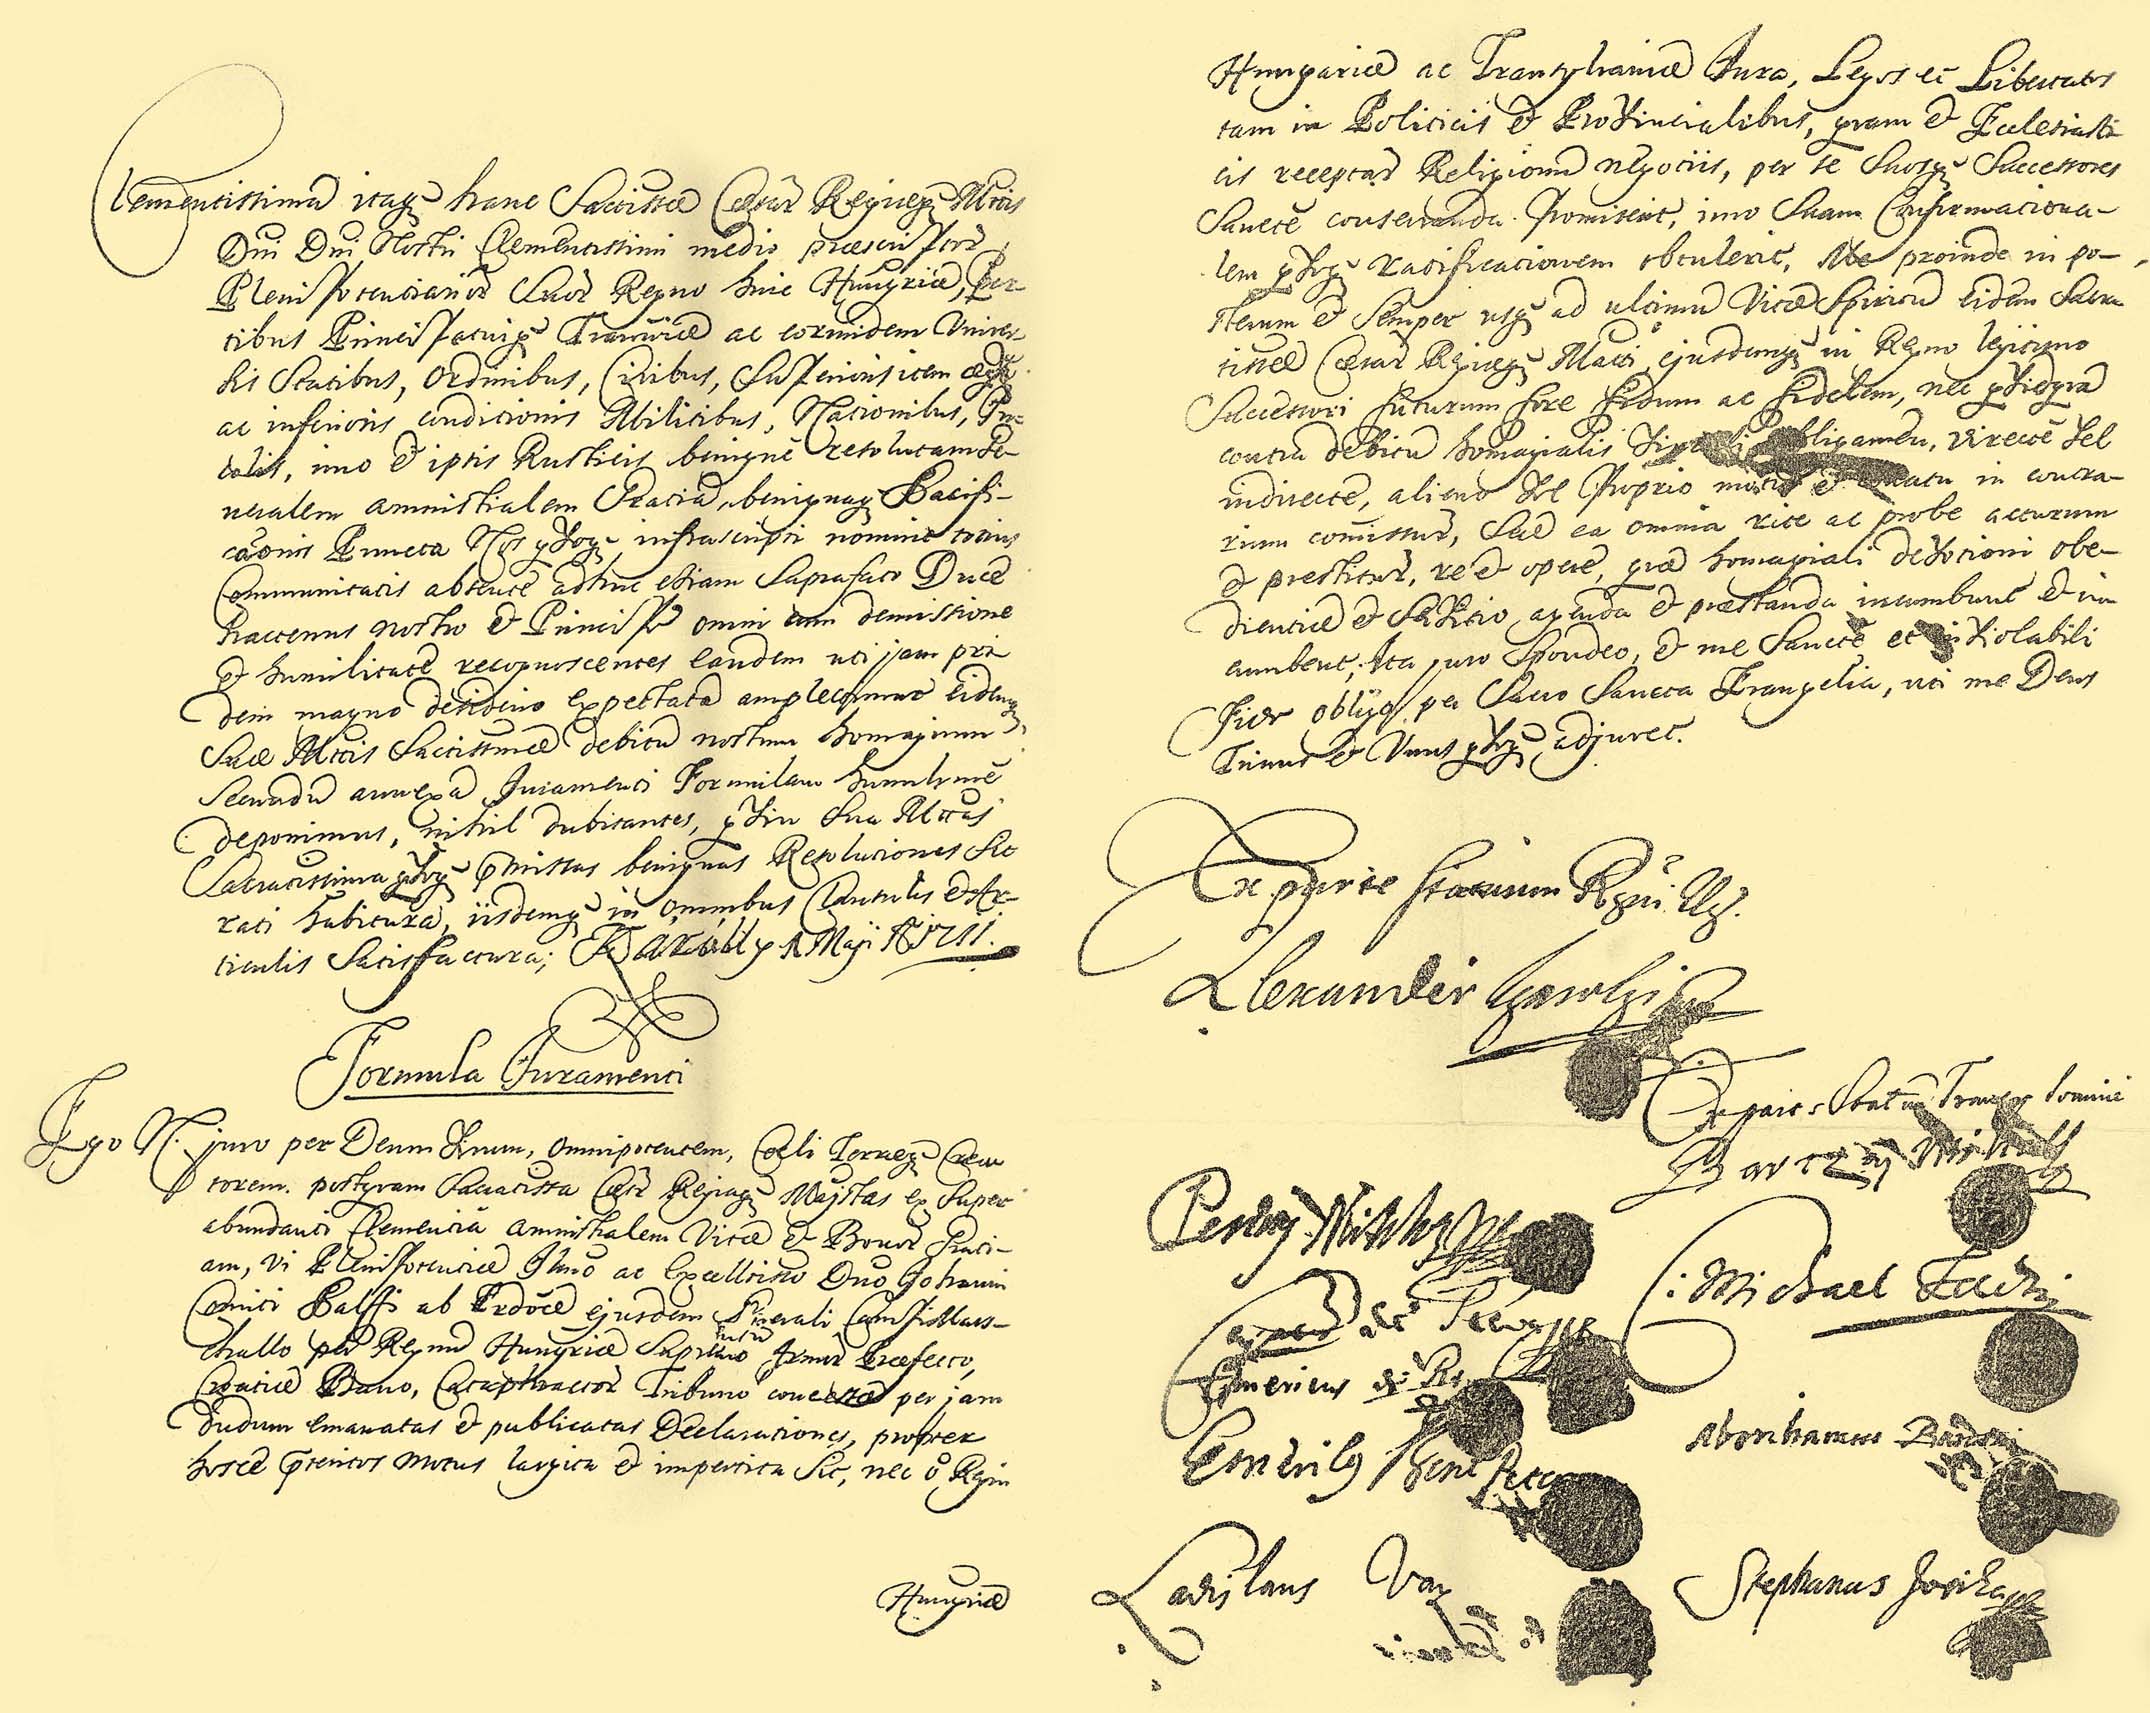 Clementissimã itaq hanc Sacrissae Caesar Regiaeq Mttis
Dni Dni Nostri Clementissimi medio praescriptor
Plenipotentiarior Suor Regno huic Hungriae, Par-
tibus Principatuiq Tranniae ac eorundem Univer-
sis Statibus, Ordinibus, Civibus, Superioris item aeque
ac inferioris conditionis Militibus, Nationibus, In-
colis, imo et ipsis Rusticis benigne resolutam Ge-
neralem amnistialem Gratiã, benignaq Pacifi-
caonis Puncta Nos qvoq infrascripti nomine totius
Communitatis absente adhuc etiam Suprafato Duce
hactenus nostro et Principe omni cum demissione
et humilitate recognoscentes eandem uti jam pri-
dem magno desiderio expectatã amplectimur eidemq
Suae Mttis Sacrissimae debitũ nostrum homagium
Secundũ annexã Juramenti Formulam humilime
deponimus, nihil dubitantes, qvin Sua Mttas
Sacratissima qvoq pmissas benignas Resolutiones Sic
rati habitura, iisdemq in omnibus Clausulis et Ar-
ticulis Satisfactura; Karoly 1 Maji A 1711.
Formula Juramenti
Ego N. juro per Deum Vivum, Omnipotentem, Coeli Terraeq Crea
torem. postqvam Sacratissa Caesr Regiaq Majstas ex Super
abundanti Clementiã amnistialem Vitae et Bonor Grati-
am, vi Plenipotentiae Illmo ac Excellmo Dno Johanni
Comiti Palffi ab Erdõed ejusdem Gnerali Campi Mars-
challo per Regnũ Hungriae Supremo Armor Praefecto,
Croatiae Bano, Cataphractor Tribuno concessae per jam
dudum emanatas et publicatas Declarationes, propter
hosce pteritos motus largita et impertita Sit, nec o Regni
Hungriae
Hungariae ac Transylvaniae Jura, Leges et Libertates
tam in Politicis et Provincialibus, qvam et Ecclesiasti
cis receptar Religionũ negotiis, per se Suosq Successores
Sancte conservanda promiserit, imo Suam Confirmationa-
lem qvoq ratificationem obtulerit, Me proinde in po-
sterum et Semper usq ad ultimũ Vitae Spiritũ eidem Sacra
tissae Caesar Regiaeq Matti, ejusdemq in Regno legitimo
Successori futurum fore fidum ac fidelem, nec qvidqvã
contra debitũ homagialis obligamen, directe vel
indirecte, alieno vel proprio motu et in contra-
rium comissur, Sed ea omnia rite ac probe acturum
et prestitur, re et opere, qvae homagiali devotioni obe-
dientiae et Servitio agenda et praestanda incumbunt et in
cumbent; Ita juro Spondeo, et me Sancte et inviolabili
ter obligo per Sacro Sancta Evangelia, uti me Deus
Trinus et Unus qvoq adjuvet.
Ex parte Statuum Regni Ung.
Alexander Karolyi
Ex parte Statuum
Michael
Emericus
Ladislaus Vay
Stephanus